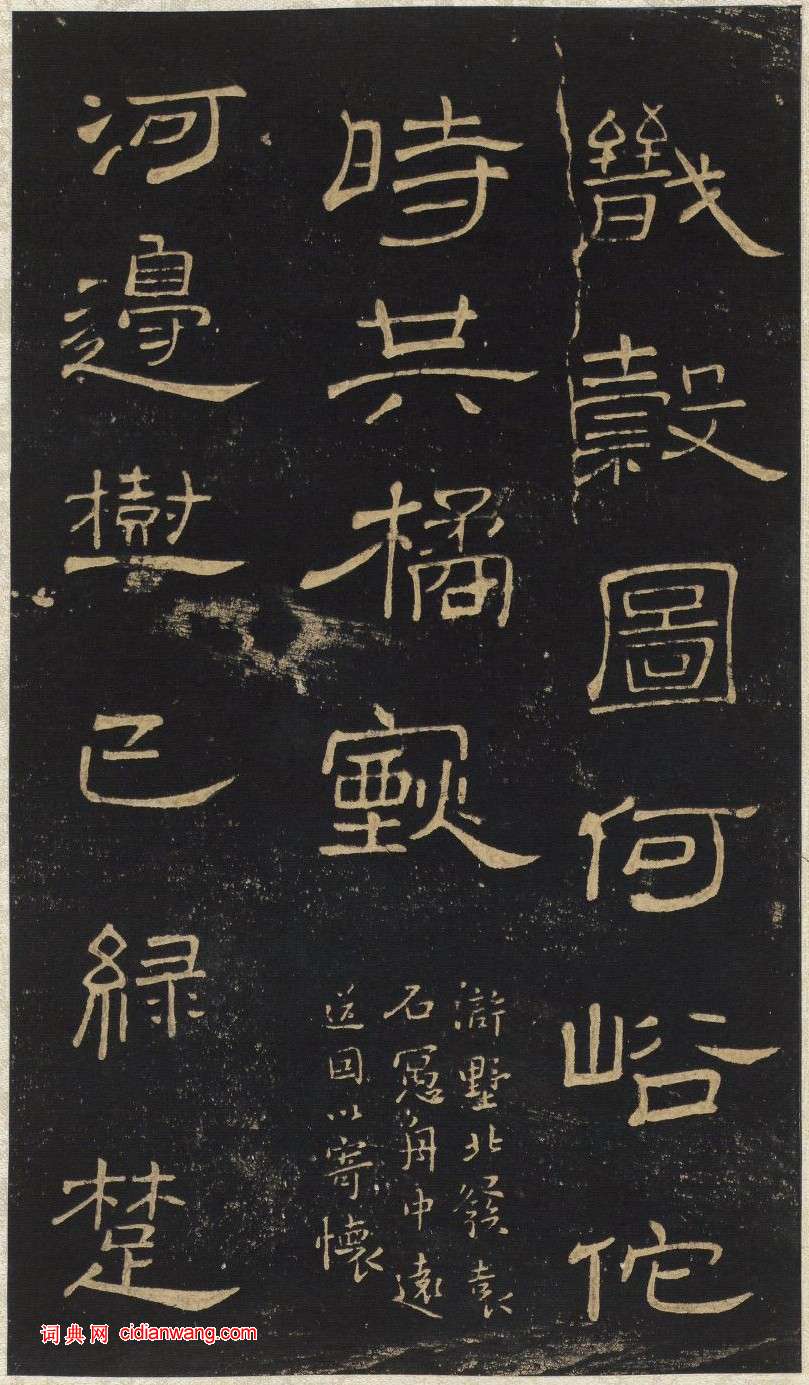 戢縠圖何峪佗
時共橘
滸墅北發袁
石寓舟中遠
送因以寄懷
河邊樹已綠楚
词典网 cidianwang.com